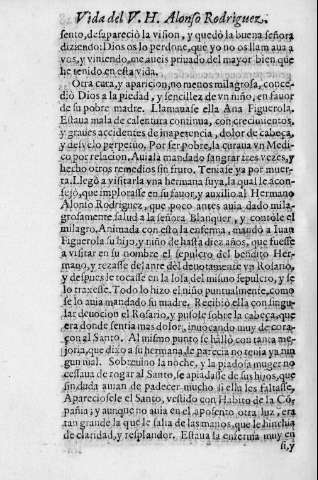 Vida del V. H. Alonso Rodriguez.
sento, desapareciò la vision, y quedò la buena señora
diziendo: Dios os lo perdone, que yo no os llamaua a
vos, y viniendo, me aueis priuado del mayor bien que
he tenido en esta vida.
Otra cura, y aparicion, no menos milagrosa, conce-
diò Dios a la piedad, y sencillez de vn niño, en fauor
de su pobre madre. Llamauase ella Ana Figuerola.
Estaua mala de calentura continua, con crecimientos,
y graues accidentes de inapetencia, dolor de cabeça,
y desvelo perpetuo. Por ser pobre, la curaua vn Medi-
co por relacion. Auiala mandado sangrar tres vezes, y
hecho otros remedios sin fruto. Teniase ya por muer-
ta. Llegò a visitarla vna hermana suya, la qual le acon-
sejò, que implorasse en su fauor, y auxilio al Hermano
Alonso Rodriguez, que poco antes auia dado mila-
grosamente salud a la señora Blanquer, y contòle el
milagro. Animada con esto la enferma, mandò a Iuan
Figuerola su hijo, y niño de hasta diez años, que fuesse
a visitar en su nombre el sepulcro del bendito Her-
mano, y rezasse delante del deuotamente vn Rosario,
y despues le tocasse en la losa del mismo sepulcro, y se
lo traxesse. Todo lo hizo el niño puntualmente, como
se lo auia mandado su madre. Recibiò ella con singu-
lar deuocion el Rosario, y pusole sobre la cabeça, que
era donde sentia mas dolor, inuocando muy de cora-
çon al Santo. Al mismo punto se hallò con tanta me-
joria, que dixo a su hermana, le parecia no tenia ya nin
gun mal. Sobreuino la noche, y la piadosa muger no
cessaua de rogar al Santo, se apiadasse de sus hijos, que
sin duda auian de padecer mucho si ella les faltasse.
Apareciosele el Santo, vestido con Habito de la Cõ-
pañia; y aunque no auia en el aposento otra luz, era
tan grande la que le salia de las manos, que le hinchia
de claridad, y resplandor. Estaua la enferma muy en
si, y